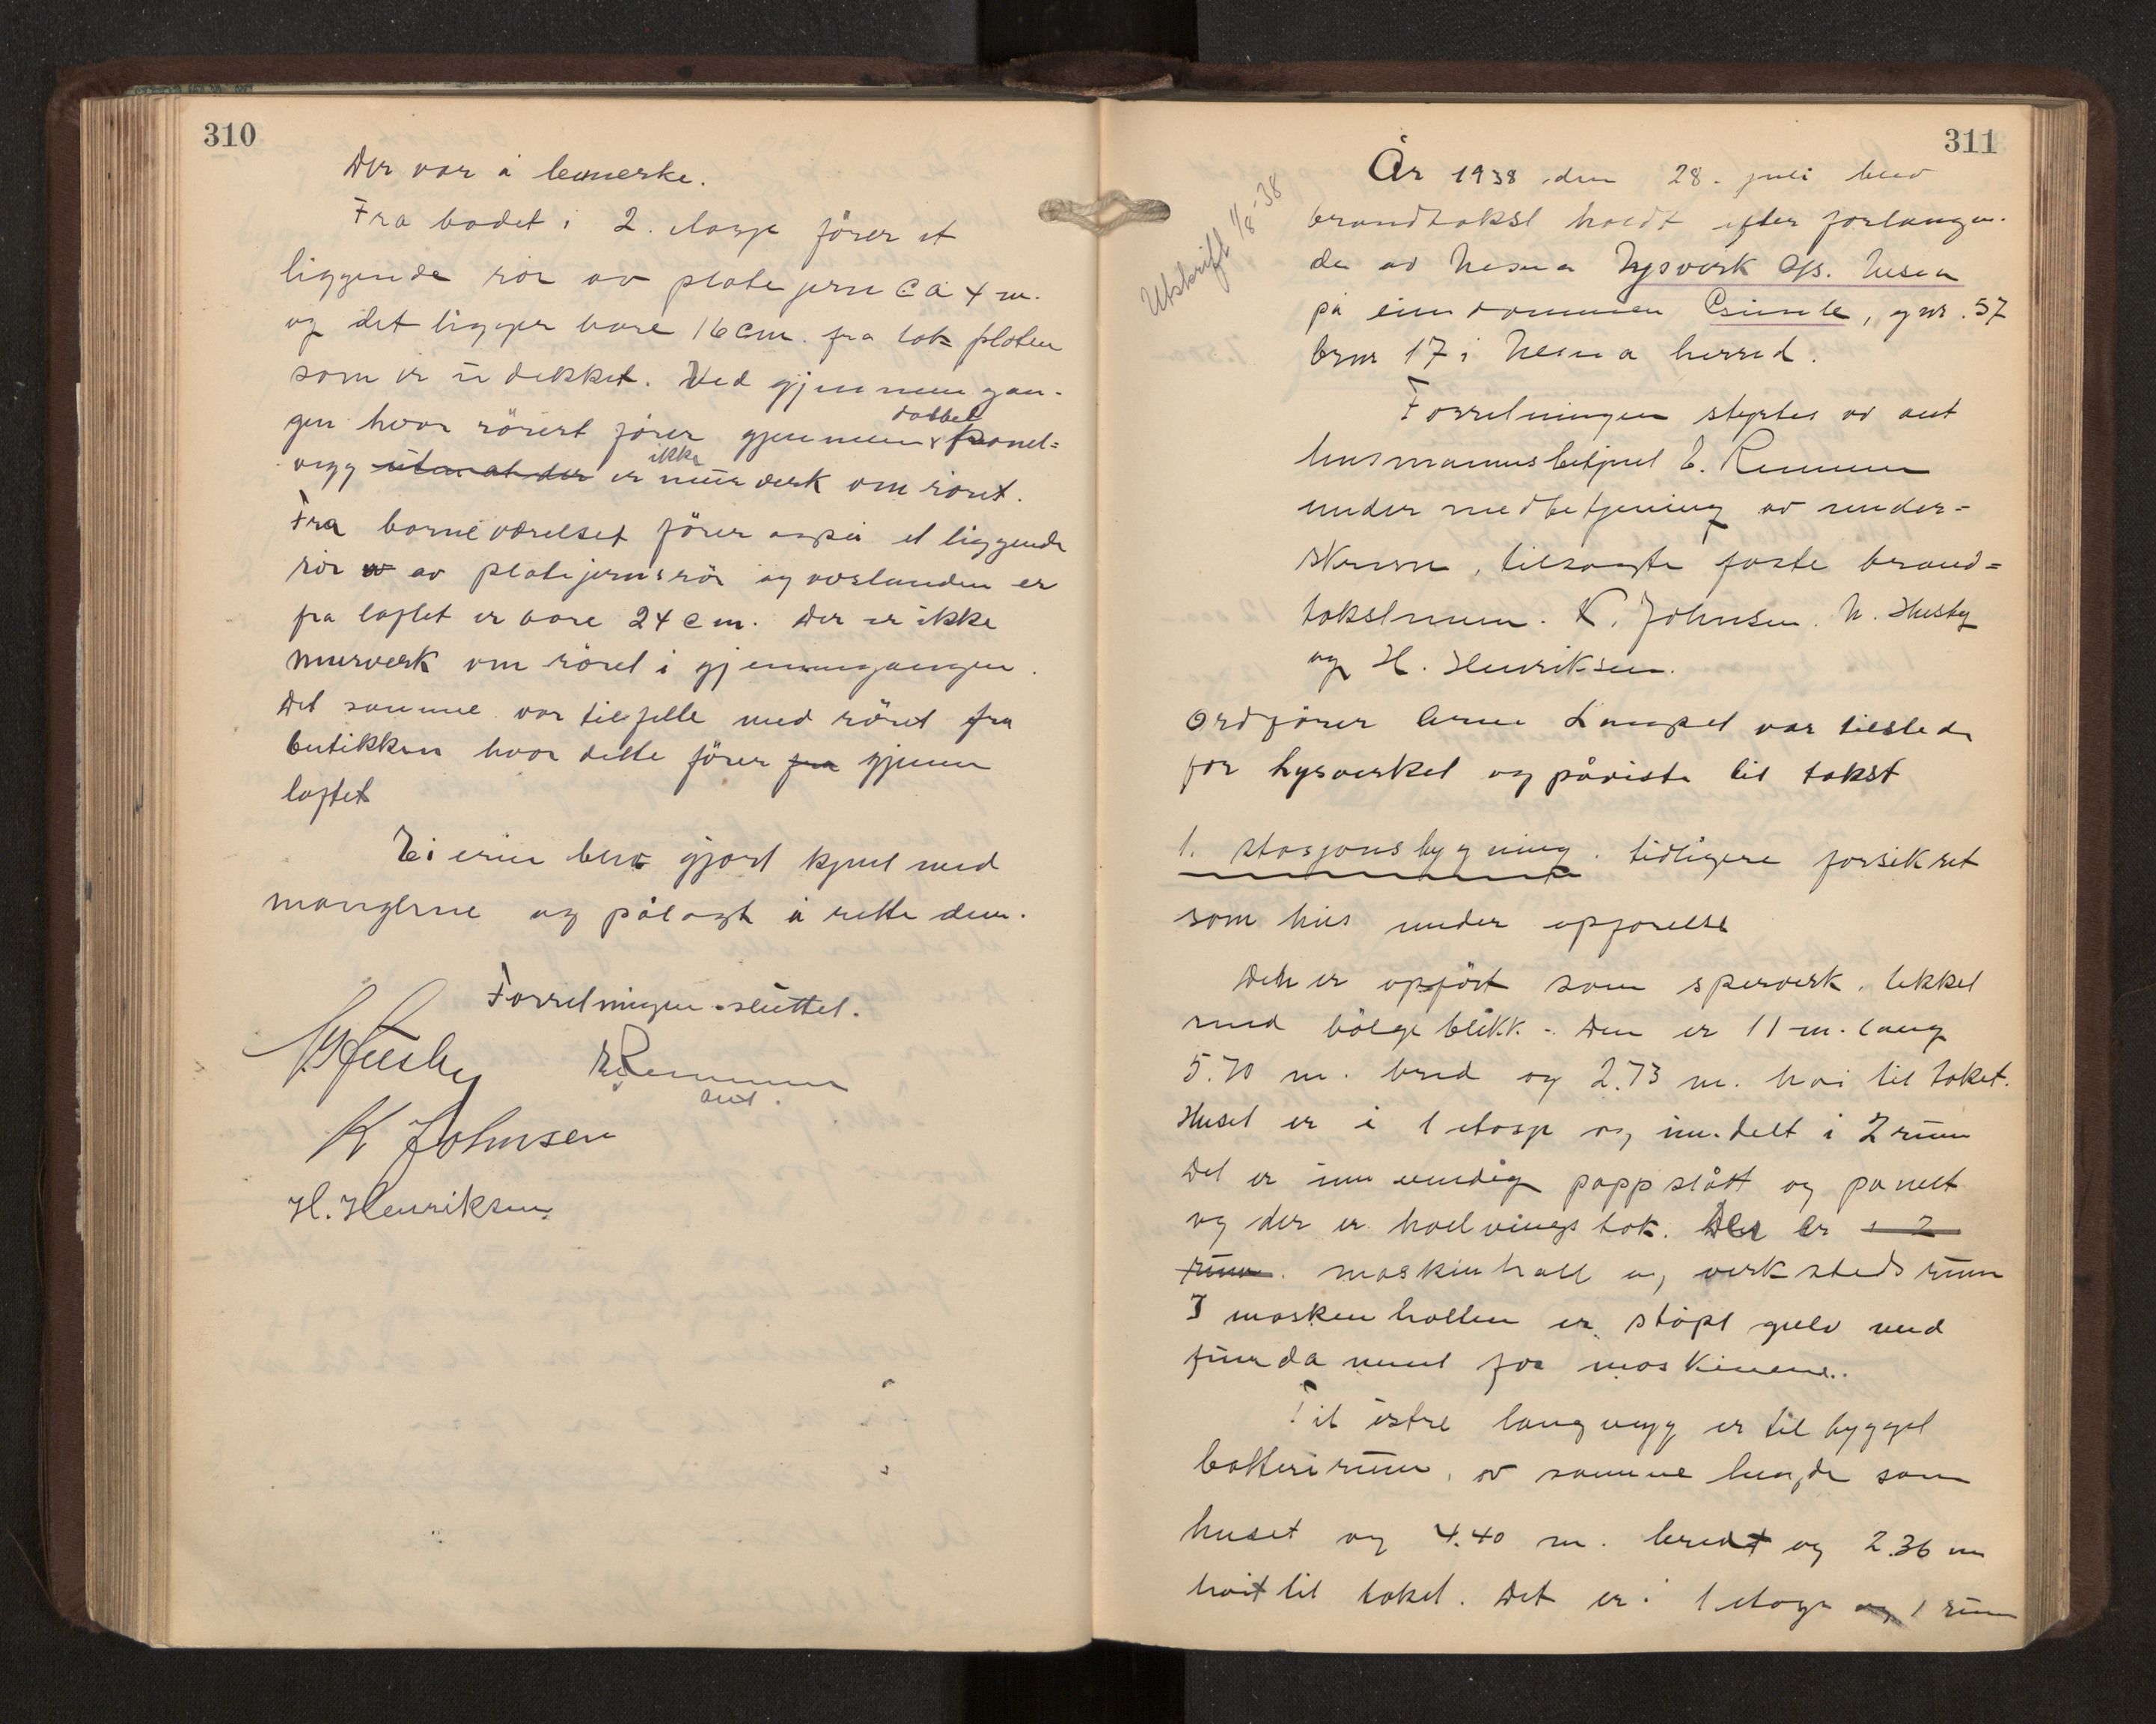 310
Der var å bemerke.
Fra badet i 2. etasje fører et
liggende rør av platejern ca 4 m.
og det ligger bare 16 cm. fra tak platen
som er udekket. Ved gjennemgan-
gen hvor röret fører gjennem dobbel panel=
vegg utenat der er ikke murverk om røret.
Fra barneværelset fører også et liggende
rör av platejernsrör og avstanden er
fra loftet er bare 24 cm. Der er ikke
murverk om röret i gjennemgangen.
Det samme var tilfelle med röret fra
butikken hvor dette fører fra gjennem
loftet
Eieren blev gjort kjent med
manglerne og pålagt å rette dem.
Forretningen sluttet.
N Husby E Remmen
aut.
K Johnsen
H. Henriksen
311
Utskrift 1/8-38
År 1938 den 28. juli blev
brandtakst holdt efter forlangen-
de av Nesna lysverk A/s. Nesna
på eiendommen, gnr. 57
brnr 17 i Nesna herred.
Forretningen styrtes av aut
lensmannsbetjent E. Remmen
under medbetjening av under=
skrevne, tilsagte faste brand=
takstmenn. K. Johnsen. N. Husby
og H. Henriksen.
Ordfører Arne var tilstede
for lysverket og påviste til takst
1. Stasjonsbygning. tidligere forsikret
som hus under opførelse
Den er opført som sperverk. tekket
med bölgeblikk. - Den er 11 m. lang
5.70 m. bred og 2.73 m. høi til taket.
Huset er i 1 etasje og inndelt i 2 rum
Det er innvendig pappslått og panelt
og der er hvelvingstak. Der er i 2
rum. maskinhall og verkstedsrum
I maskenhallen er støpt gulv med
fundament for maskinene.
Til østre langvegg er tilbygget
batterirum, av samme lengde som
huset og 4.40 m. bredt og 2.36 m
høit til taket. Det er i 1 etage og 1 rum